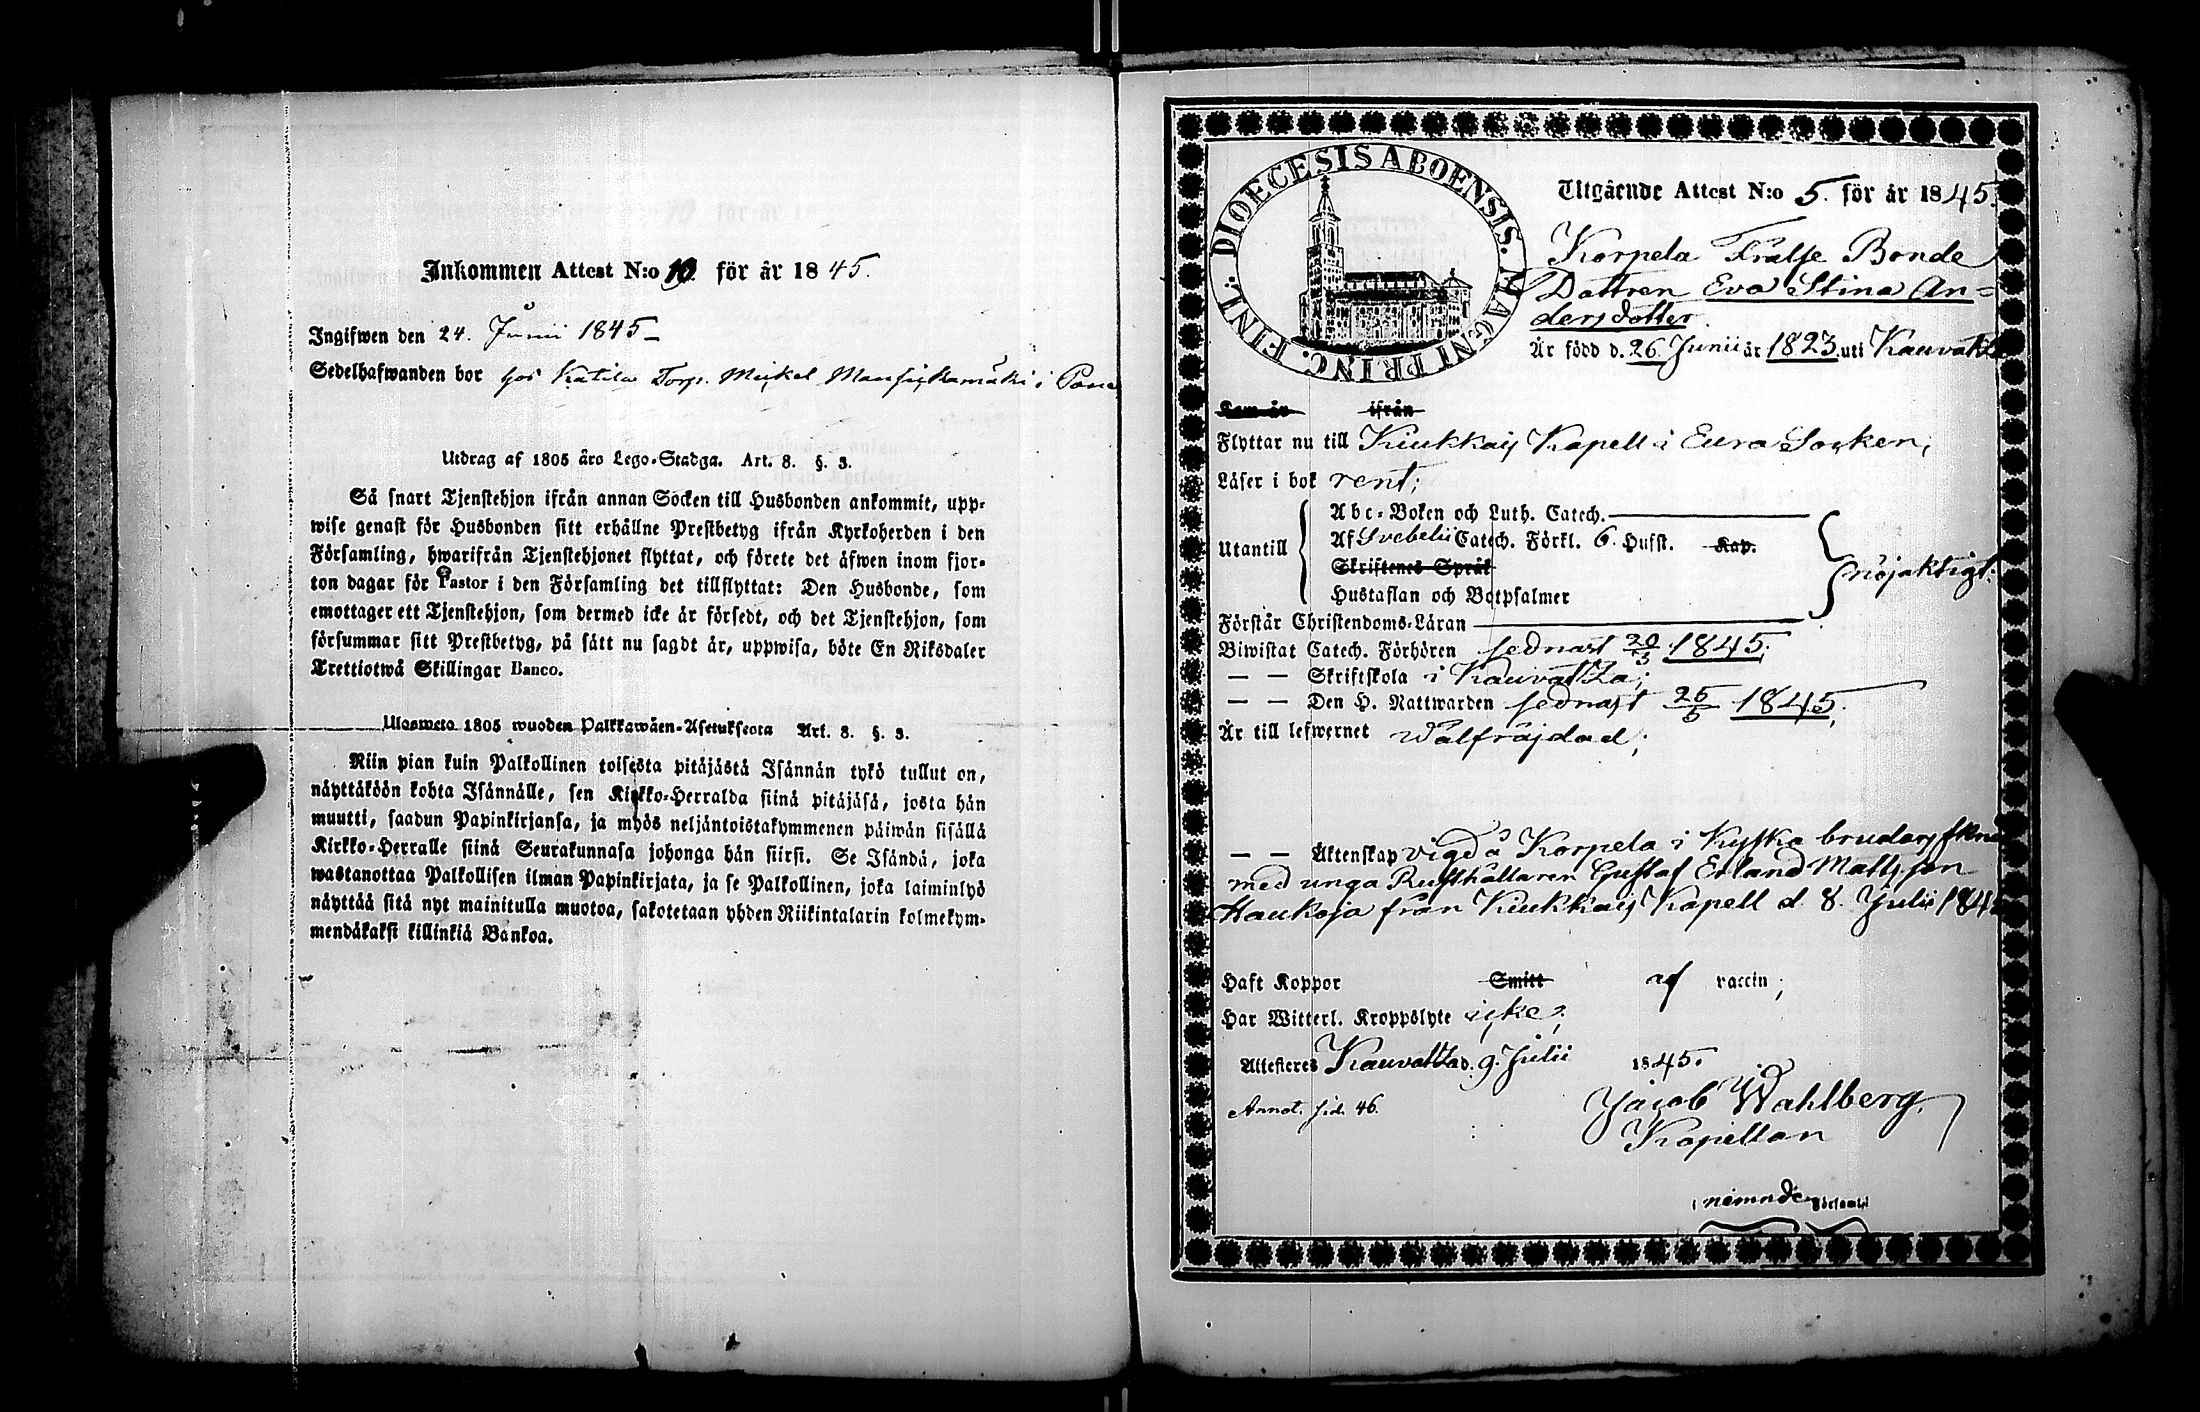 Inkommen Attest N:o 10. för år 1845.
Ingifwen den 24. Junii 1845 –
Sedelhafwanden bor hos Katila Torp. Mickel Mansickamäki i
Utdrag af 1805 års Lego-Stadga. Art. 8. §. 3.
Så snart Tjenstehjon ifrån annan Socken till Husbonden ankommit, upp-
wise genast för Husbonden sitt erhållne Prestbetyg ifrån Kyrkoherden i den
Församling, hwarifrån Tjenstehjonet flyttat, och förete det äfwen inom fjor-
ton dagar för Pastor i den Församling det tillflyttat: Den Husbonde, som
emottager ett Tjenstehjon, som dermed icke är försedt, och det Tjenstehjon, som
försummar sitt Prestbetyg, på sätt nu sagdt är, uppwisa, böte En Riksdaler
Trettiotwå Skillingar Banco.
Ulosweto 1805 wuoden Palkkawäen-Asetuksesta Art. 8. §. 3.
Niin pian kuin Palkollinen toisesta pitäjästä Isännän tykö tullut on,
näyttäköön kohta Isännälle, sen Kirkko-Herralda siinä pitäjäsä, josta hän
muutti, saadun Papinkirjansa, ja myös neljäntoistakymmenen päiwän sisällä
Kirkko-Herralle siinä Seurakunnasa johonga hän siirsi. Se Isändä, joka
wastanottaa Palkollisen ilman Papinkirjata, ja se Palkollinen, joka laiminlyö
näyttää sitä nyt mainitulla muotoa, sakotetaan yhden Riikintalarin kolmekym-
mendäkaksi killinkiä Bankoa.
DIOECESIS ABOENSIS. MAGNI PRINC. FINL.
Utgående Attest N:o 5. för år 1845.
Korpela Frälse Bonde
Dottren Eva Stina An-
dersdotter
Är född d. 26. Junii år 1823. uti Kauvatsa
Kom år ifrån
Flyttar nu till Kiukkais Kapell i Eura Socken;
Läser i bok rent;
Utantill
Abc-Boken och Luth. Catech.
Af Svebelii Catech. Förkl. 6. Hufst. Kap.
Skriftenes Språk
Hustaflan och Botpsalmer
nöjaktigt;
Förstår Christendoms-Läran
Biwistat Catech. Förhören sednast 20/3 1845;
— — Skriftskola i Kauvatsa;
— — Den H. Nattwarden sednast 25/5 1845;
Är till lefwernet Välfräjdad;
— — Äktenskap vigd å Korpela i Kyska
med unga Rusthållaren Gustaf Erland Mattsson
Haukoja från Kiukkais Kapell d. 8. Julii
Haft Koppor Smitt af vaccin;
Har Witterl. Kroppslyte icke;
Attesteres Kauvatsa d. 9. Julii 1845.
Annot. sid. 46.
Jacob Wahlberg.
Kapellan
i nämnde Församl.